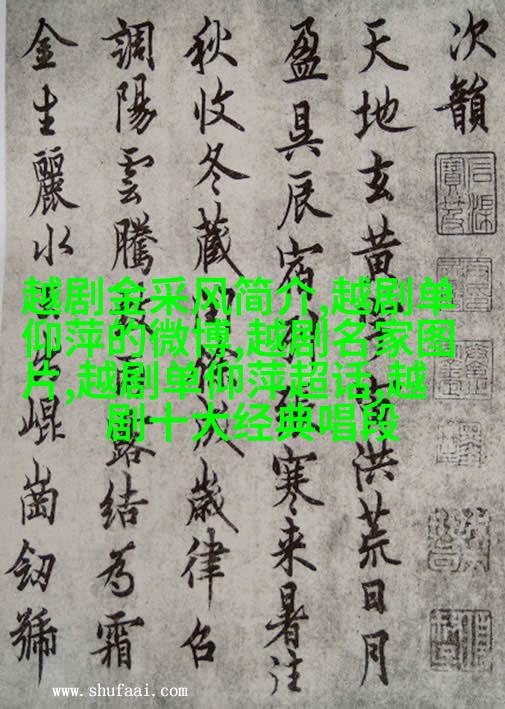 次韻
天地玄黄洪荒日月
盈昃辰宿張寒来暑往
秋收冬藏歲律吕
調陽雲騰露結為霜
金生麗水崐崗劒號
越剧金采风简介,越剧单
仰萍的微博,越剧名家图
片,越剧单仰萍超话,越
剧十大经典唱段
www.shufaai.com